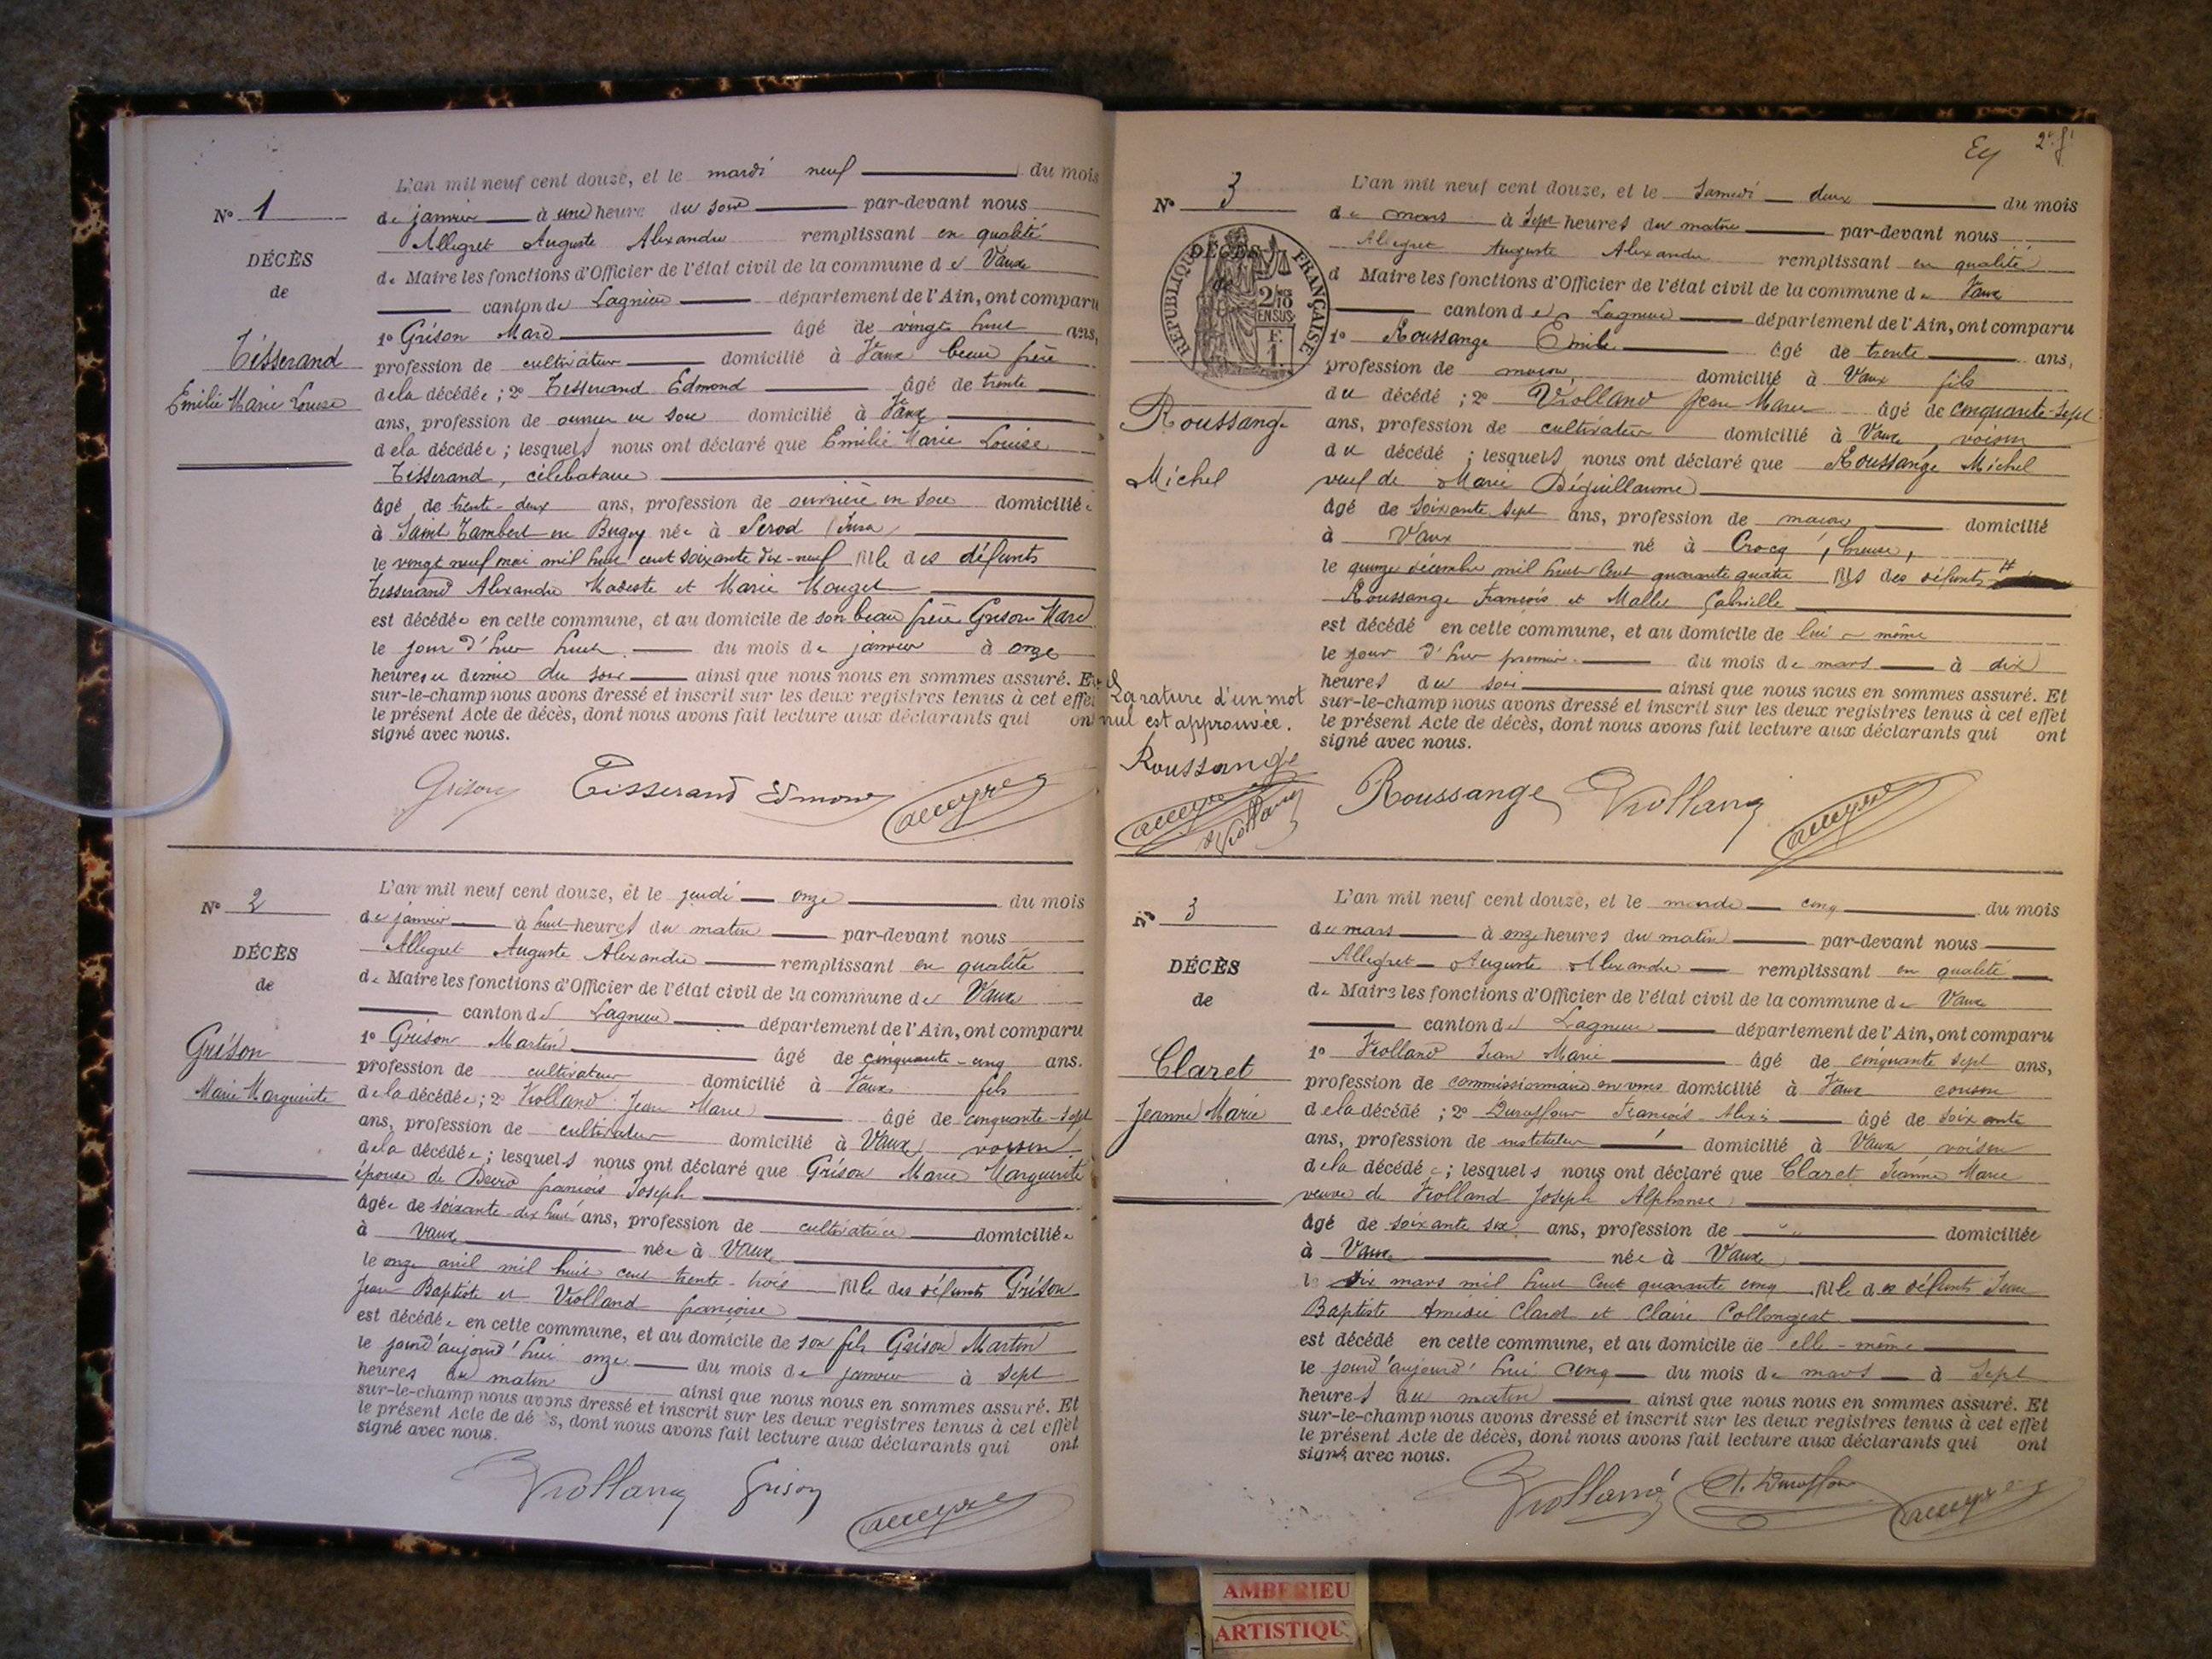 L'an mil neuf cent douze, et le mardi neuf du mois
de janvier à une heure du soir par-devant nous
Allegret Auguste Alexandre remplissant en qualité
de Maire les fonctions d'Officier de l'état civil de la commune de Vaux
canton de Lagnieu département de l'Ain, ont comparu
1º Grison Marc âgé de vingt huit ans,
profession de cultivateur domicilié à Vaux beau frère
de la décédée ; 2º Tisserand Edmond âgé de trente
ans, profession de ouvrier en soie domicilié à Vaux
de la décédée ; lesquels nous ont déclaré que Emilie Marie Louise
Tisserand, célibataire
âgé de trente-deux ans, profession de ouvrière en soie domiciliée
à Saint Rambert en Bugey née à Perod (Jura)
le vingt neuf mai mil huit cent soixante dix-neuf fille des défunts
Tisserand Alexandre Modeste et Marie Mouget
est décédée en cette commune, et au domicile de son beau frère Grison Marc
le jour d'hier huit du mois de janvier à onze
heures et demie du soir ainsi que nous nous en sommes assuré. Et
sur-le-champ nous avons dressé et inscrit sur les deux registres tenus à cet effet
le présent Acte de décès, dont nous avons fait lecture aux déclarants qui ont
signé avec nous.
Nº 1
DÉCÈS
de
Tisserand
Emilie Marie Louise
Grison Tisserand Edmond
L'an mil neuf cent douze, et le jeudi onze du mois
de janvier à huit heures du matin par-devant nous
Allegret Auguste Alexandre remplissant en qualité
de Maire les fonctions d'Officier de l'état civil de la commune de Vaux
canton de Lagnieu département de l'Ain, ont comparu
1º Grison Martin âgé de cinquante-cinq ans.
profession de cultivateur domicilié à Vaux fils
de la décédée ; 2º Violland Jean Marie âgé de cinquante-sept
ans, profession de cultivateur domicilié à Vaux, voisin
de la décédée ; lesquels nous ont déclaré que Grison Marie Marguerite
épouse de françois Joseph
âgée de soixante-dix huit ans, profession de cultivatrice domiciliée
à Vaux née à Vaux
le onze avril mil huit cent trente-trois fille des défunts Grison
Jean Baptiste et Violland françoise
est décédée en cette commune, et au domicile de son fils Grison Martin
le jourd'aujourd'hui onze du mois de janvier à sept
heures du matin ainsi que nous nous en sommes assuré. Et
sur-le-champ nous avons dressé et inscrit sur les deux registres tenus à cet effet
le présent Acte de décès, dont nous avons fait lecture aux déclarants qui ont
signé avec nous.
Nº 2
DÉCÈS
de
Grison
Marie Marguerite
Violland Grison
2e f
L'an mil neuf cent douze, et le Samedi deux du mois
de mars à sept heures du matin par-devant nous
Allegret Auguste Alexandre remplissant en qualité
d Maire les fonctions d'Officier de l'état civil de la commune de Vaux
canton de Lagnieu département de l'Ain, ont comparu
1º Roussange Emile âgé de trente ans,
profession de maçon domicilié à Vaux fils
du décédé ; 2º Violland Jean Marie âgé de cinquante-sept
ans, profession de cultivateur domicilié à Vaux, voisin
du décédé ; lesquels nous ont déclaré que Roussange Michel
veuf de Marie Déguillaume
âgé de soixante sept ans, profession de maçon domicilié
à Vaux né à Crocq, Creuse,
le quinze décembre mil huit cent quarante quatre fils des défunts #
Roussange François et Mallet Gabrielle
est décédé en cette commune, et au domicile de lui-même
le jour d'hier premier du mois de mars à dix
heures du soir ainsi que nous nous en sommes assuré. Et
sur-le-champ nous avons dressé et inscrit sur les deux registres tenus à cet effet
le présent Acte de décès, dont nous avons fait lecture aux déclarants qui ont
signé avec nous.
Nº 3
DÉCÈS
de
RÉPUBLIQUE FRANÇAISE
2/10
EN SUS
F.
1.
Roussange
Michel
La rature d'un mot
nul est approuvée.
Roussange
Violland
Roussange Violland
L'an mil neuf cent douze, et le mardi cinq du mois
de mars à onze heures du matin par-devant nous
Allegret Auguste Alexandre remplissant en qualité
de Maire les fonctions d'Officier de l'état civil de la commune de Vaux
canton de Lagnieu département de l'Ain, ont comparu
1º Violland Jean Marie âgé de cinquante sept ans,
profession de commissionnaire en vins domicilié à Vaux cousin
de la décédé ; 2º Duraffour François Alexis âgé de soixante
ans, profession de instituteur domicilié à Vaux voisin
de la décédée ; lesquels nous ont déclaré que Claret Jeanne Marie
veuve de Violland Joseph Alphonse
âgé de soixante six ans, profession de domiciliée
à Vaux née à Vaux
le six mars mil huit cent quarante cinq fille des défunts Jean
Baptiste Amédée Claret et Claire Collonges
est décédé en cette commune, et au domicile de elle-même
le jourd'aujourd'hui cinq du mois de mars à sept
heures du matin ainsi que nous nous en sommes assuré. Et
sur-le-champ nous avons dressé et inscrit sur les deux registres tenus à cet effet
le présent Acte de décès, dont nous avons fait lecture aux déclarants qui ont
signé avec nous.
Nº 3
DÉCÈS
de
Claret
Jeanne Marie
Violland A. Duraffour
AMBERIEU
ARTISTIQU